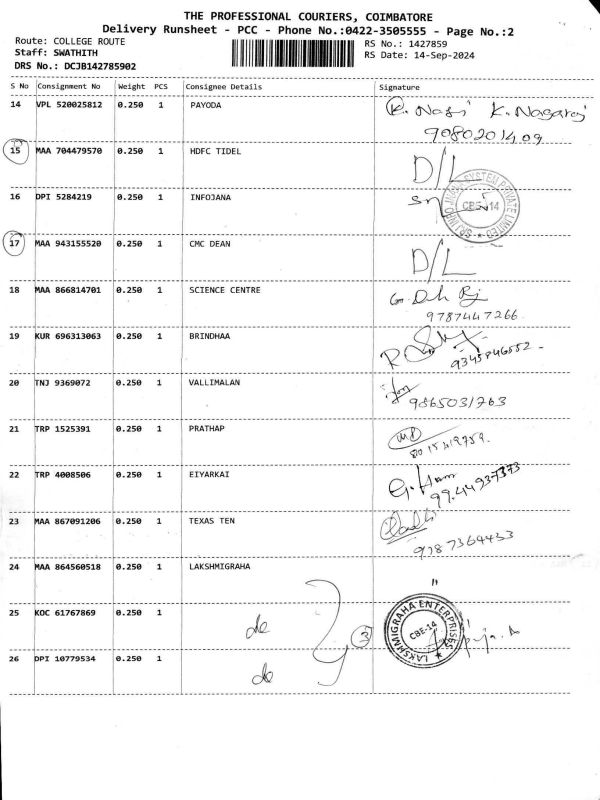 THE PROFESSIONAL COURIERS, COIMBATORE
Delivery Runsheet - PCC - Phone No.:0422-3505555 - Page No.:2
Route: COLLEGE ROUTE
Staff: SWATHITH
DRS No.: DCJB142785902
RS No.: 1427859
RS Date: 14-Sep-2024
S No Consignment No Weight PCS Consignee Details Signature
14 VPL 520025812 0.250 1 PAYODA K. Nagaraj
9080201409
15 MAA 704479570 0.250 1 HDFC TIDEL D/L
16 DPI 5284219 0.250 1 INFOJANA
CBE-14
17 MAA 943155520 0.250 1 CMC DEAN D/L
18 MAA 866814701 0.250 1 SCIENCE CENTRE
9787447266
19 KUR 696313063 0.250 1 BRINDHAA
9345846552
20 TNJ 9369072 0.250 1 VALLIMALAN
9865031763
21 TRP 1525391 0.250 1 PRATHAP
22 TRP 4008506 0.250 1 EIYARKAI
99.44937373
23 MAA 867091206 0.250 1 TEXAS TEN
9187364433
24 MAA 864560518 0.250 1 LAKSHMIGRAHA "
LAKSHMIGRAHA ENTERPRISES
CBE-14
25 KOC 61767869 0.250 1 do 3
26 DPI 10779534 0.250 1 do